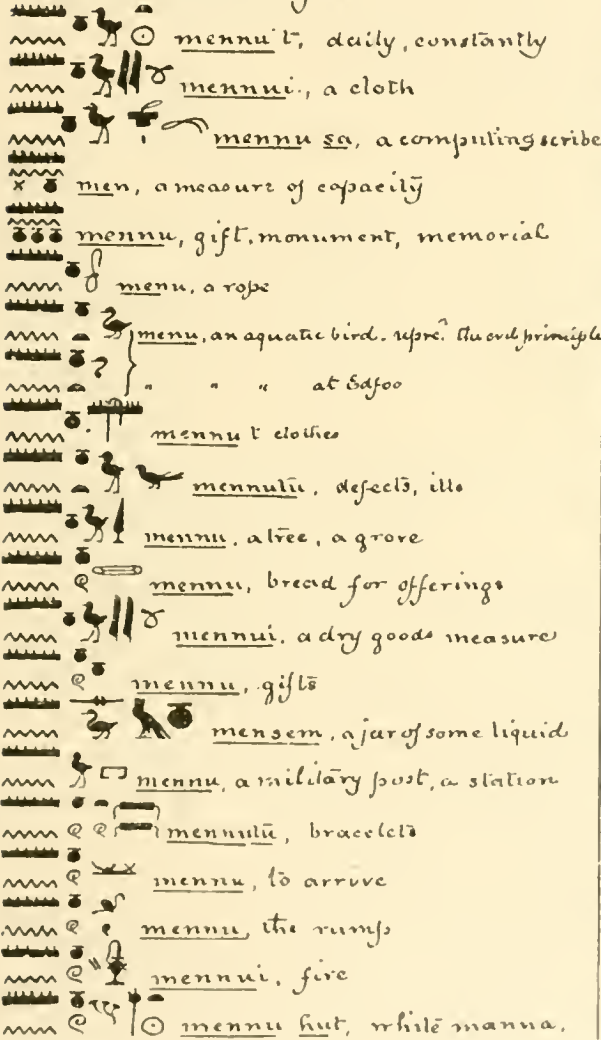 mennu t, daily, constantly
mennui., a cloth
mennu sa, a computing scribe
men, a measure of capacity
mennu, gift. monument, memorial
menu, a rope
menu, an aquatic bird. repre. the evil principle
" " " at Edfoo
mennu t clothes
mennutu, defects, ills
mennu. a tree, a grove
mennu, bread for offerings
mennui. a dry goods measure
mennu, gifts
mensem, a jar of some liquid
mennu, a military post, a station
mennutu, bracelets
mennu, to arrive
mennu, the rump
mennui, fire
mennu hut, white manna.